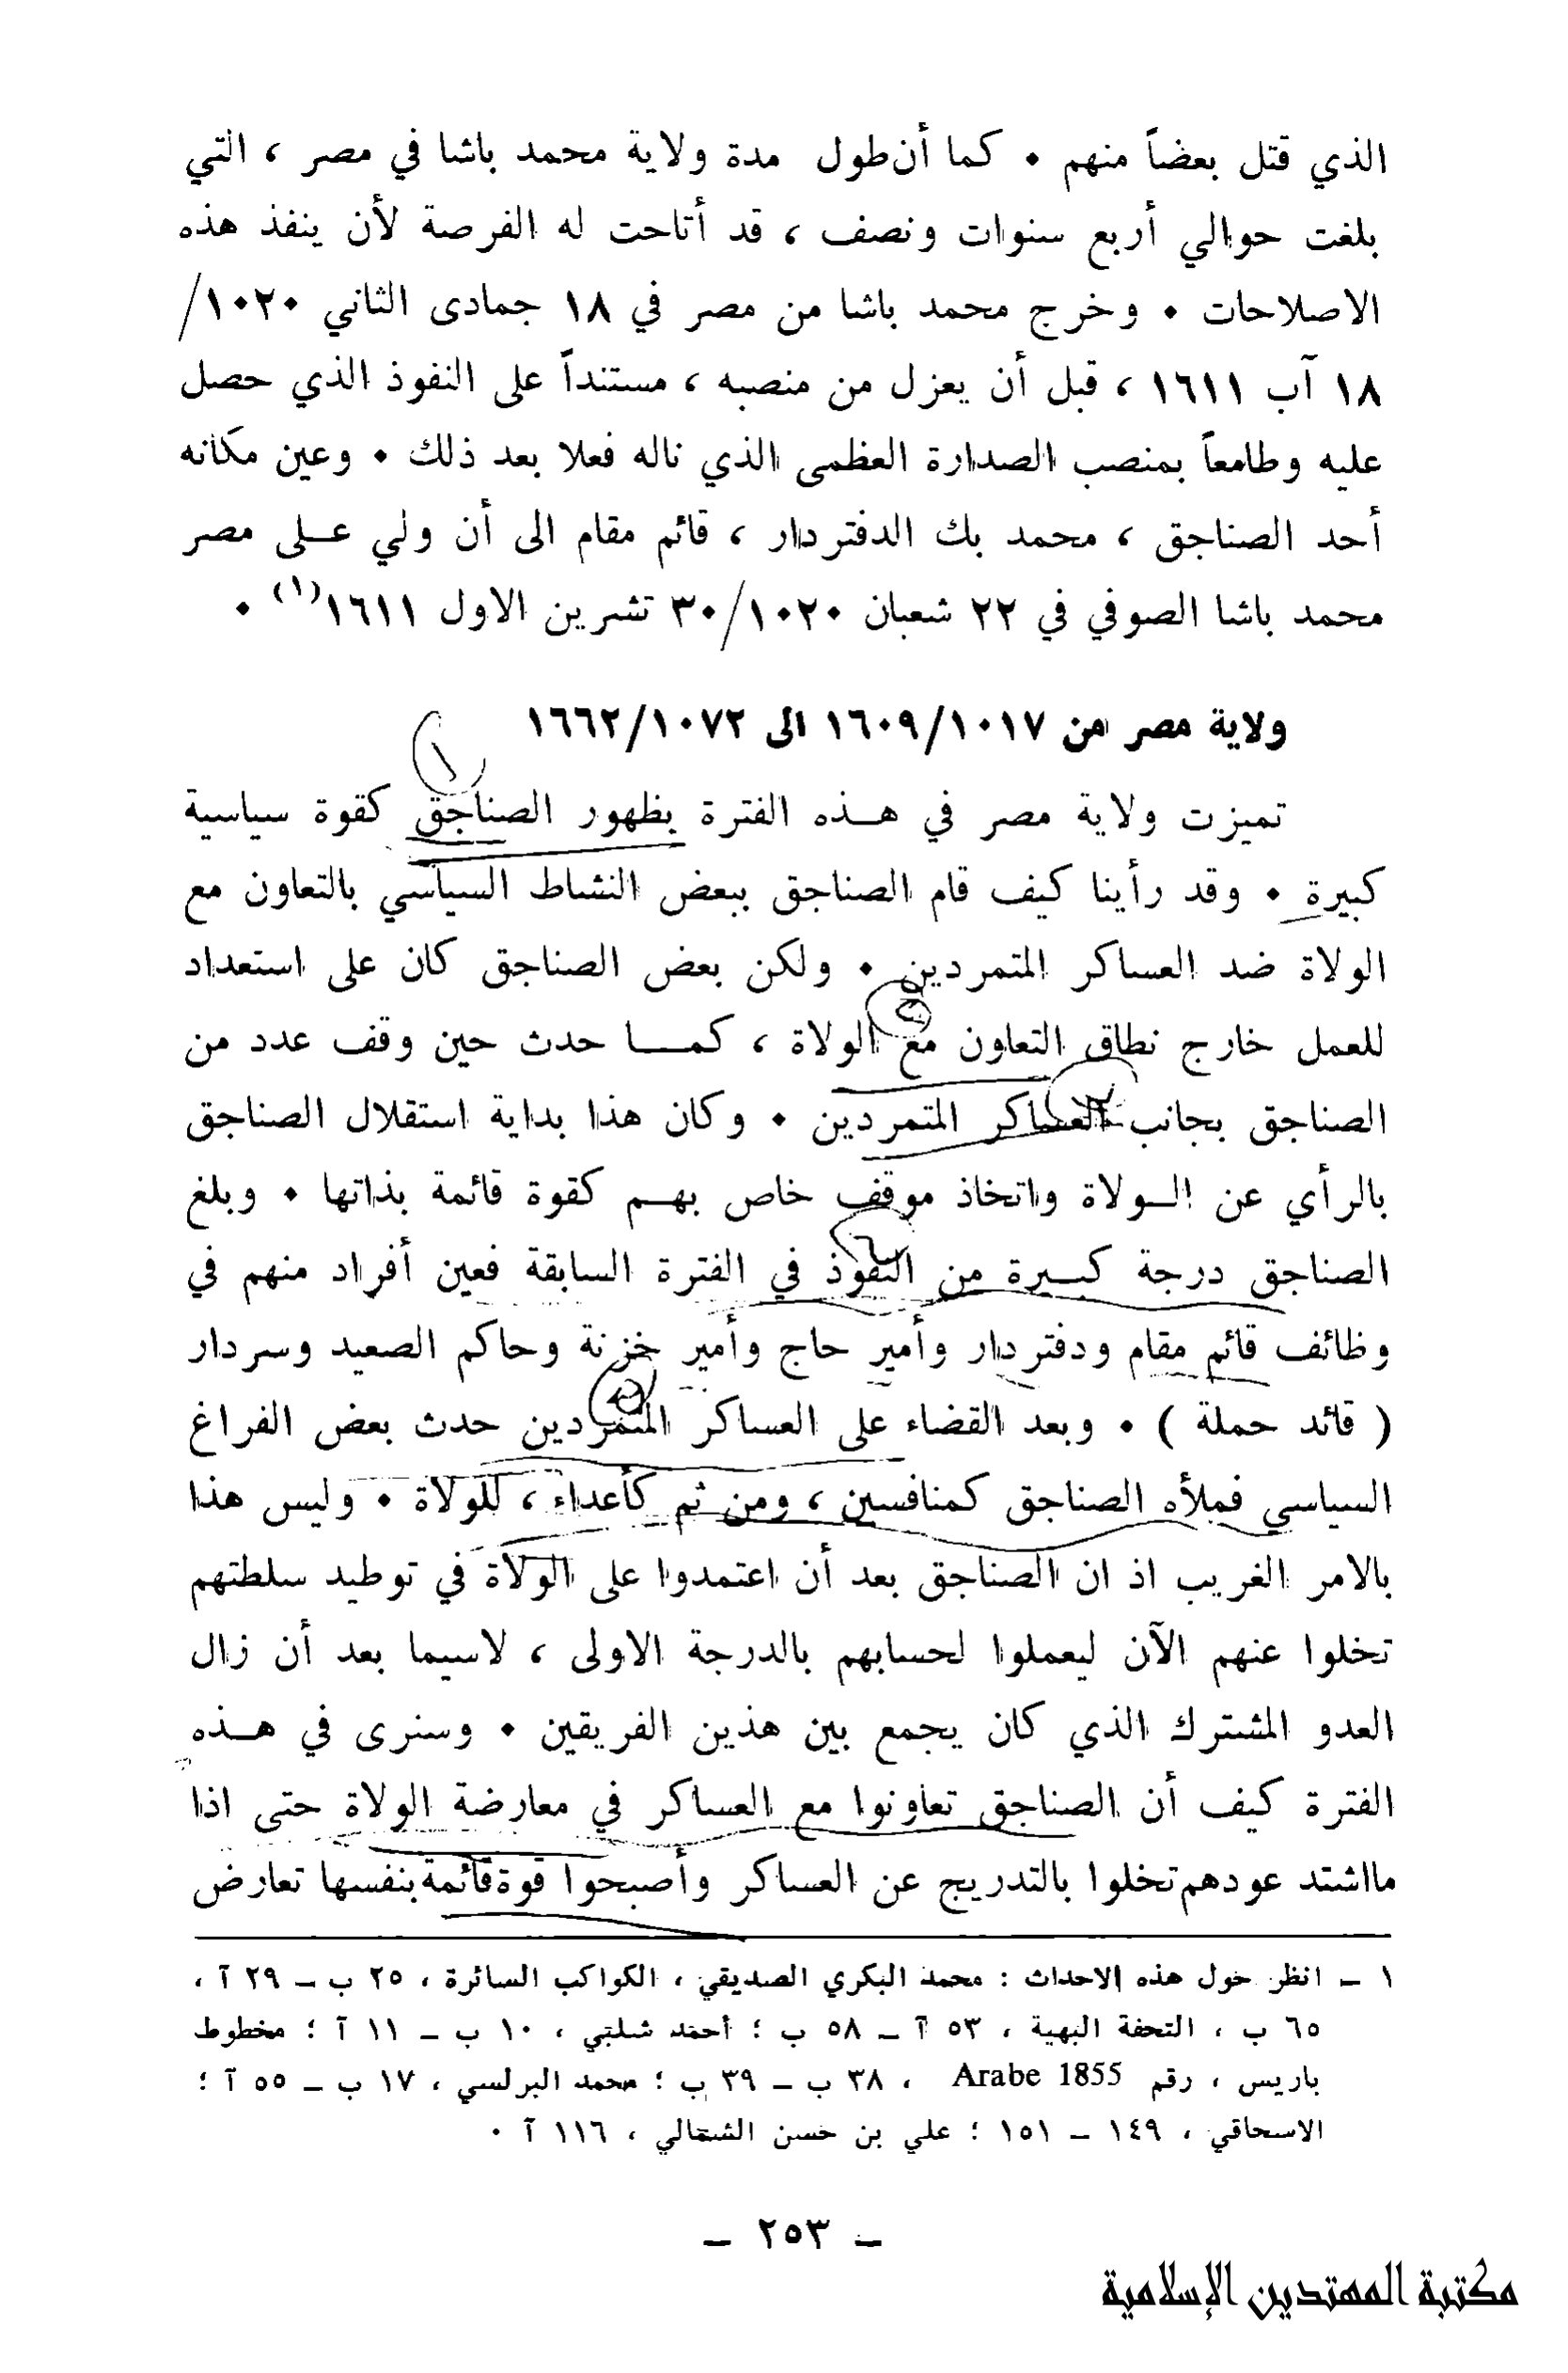 الذي قتل بعضاً منهم ٠ كما أن طول مدة ولاية محمد باشا في مصر ، التي
بلغت حوالي أربع سنوات ونصف ، قد أتاحت له الفرصة لأن ينفذ هذه
الاصلاحات ٠ وخرج محمد باشا من مصر في ١٨ جمادى الثاني ١٠٢٠/
١٨ آب ١٦١١ ، قبل أن يعزل من منصبه ، مستنداً على النفوذ الذي حصل
عليه وطامعاً بمنصب الصدارة العظمى الذي ناله فعلا بعد ذلك ٠ وعين مكانه
أحد الصناجق ، محمد بك الدفتردار ، قائم مقام الى أن ولي عـلى مصر
محمد باشا الصوفي في ٢٢ شعبان ٣٠/١٠٢٠ تشرين الاول ١٦١١(١) ٠
ولاية مصر من ١٦٠٩/١٠١٧ الى ١٦٦٢/١٠٧٢
١
تميزت ولاية مصر في هـذه الفترة بظهور الصناجق كقوة سياسية
كبيرة ٠ وقد رأينا كيف قام الصناجق ببعض النشاط السياسي بالتعاون مع
الولاة ضد العساكر المتمردين ٠ ولكن بعض الصناجق كان على استعداد
للعمل خارج نطاق التعاون مع الولاة ، كمـا حدث حين وقف عدد من
الصناجق بجانب العساكر المتمردين ٠ وكان هذا بداية استقلال الصناجق
بالرأي عن الـولاة واتخاذ موقف خاص بهـم كقوة قائمة بذاتها ٠ وبلغ
الصناجق درجة كبـيرة من النفوذ في الفترة السابقة فعين أفراد منهم في
وظائف قائم مقام ودفتردار وأمير حاج وأمير خزنة وحاكم الصعيد وسردار
( قائد حملة ) ٠ وبعد القضاء على العساكر المتمردين حدث بعض الفراغ
السياسي فملأه الصناجق كمنافسين ، ومن ثم كأعداء ، للولاة ٠ وليس هذا
بالامر الغريب اذ ان الصناجق بعد أن اعتمدوا على الولاة في توطيد سلطتهم
تخلوا عنهم الآن ليعملوا لحسابهم بالدرجة الاولى ، لاسيما بعد أن زال
العدو المشترك الذي كان يجمع بين هذين الفريقين ٠ وسنرى في هـذه
الفترة كيف أن الصناجق تعاونوا مع العساكر في معارضة الولاة حتى اذا
مااشتد عودهم تخلوا بالتدريج عن العساكر وأصبحوا قوة قائمة بنفسها تعارض
١ ـ انظر حول هذه الاحداث : محمد البكري الصديقي ، الكواكب السائرة ، ٢٥ ب ـ ٢٩ آ ،
٦٥ ب ، التحفة البهية ، ٥٣ آ ـ ٥٨ ب ؛ أحمد شلبي ، ١٠ ب ـ ١١ آ ؛ مخطوط
باريس ، رقم Arabe 1855 ، ٣٨ ب ـ ٣٩ ب ؛ محمد البرلسي ، ١٧ ب ـ ٥٥ آ ؛
الاسحاقي ، ١٤٩ ـ ١٥١ ؛ علي بن حسن الشمالي ، ١١٦ آ ٠
ـ ٢٥٣ ـ
مكتبة المهتدين الإسلامية